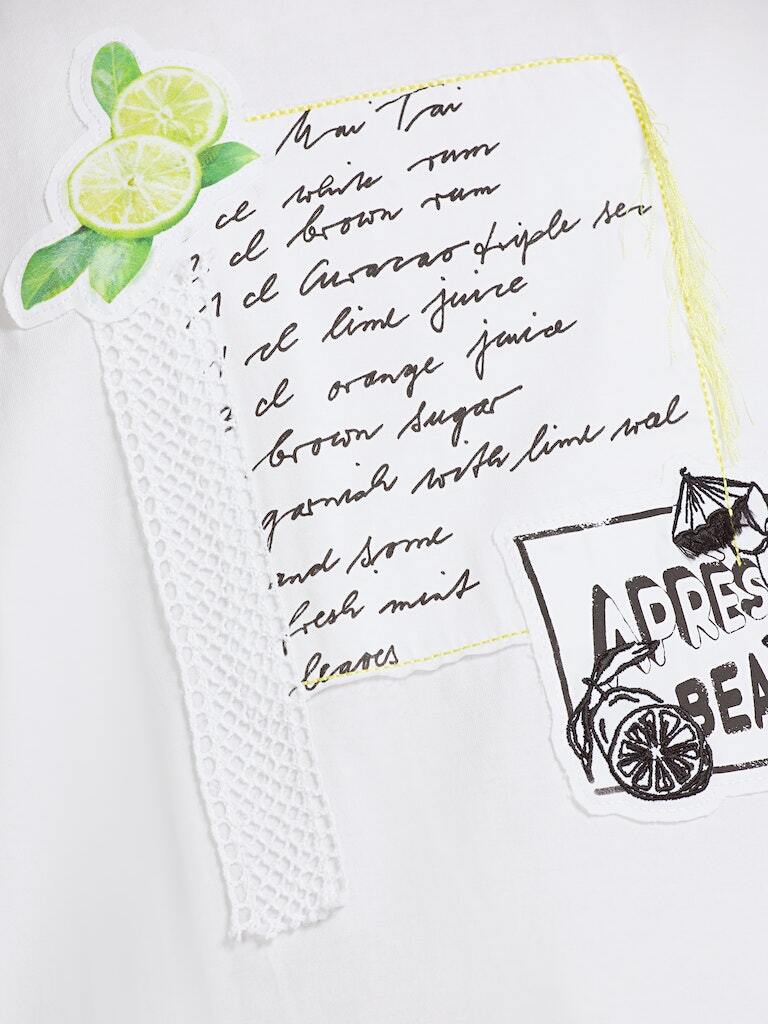 Mai Tai
cl white rum
cl brown rum
1 cl Curacao triple sec
cl lime juice
cl orange juice
brown sugar
garnish with lime wal
and some
fresh mint
leaves
APRES
BEA